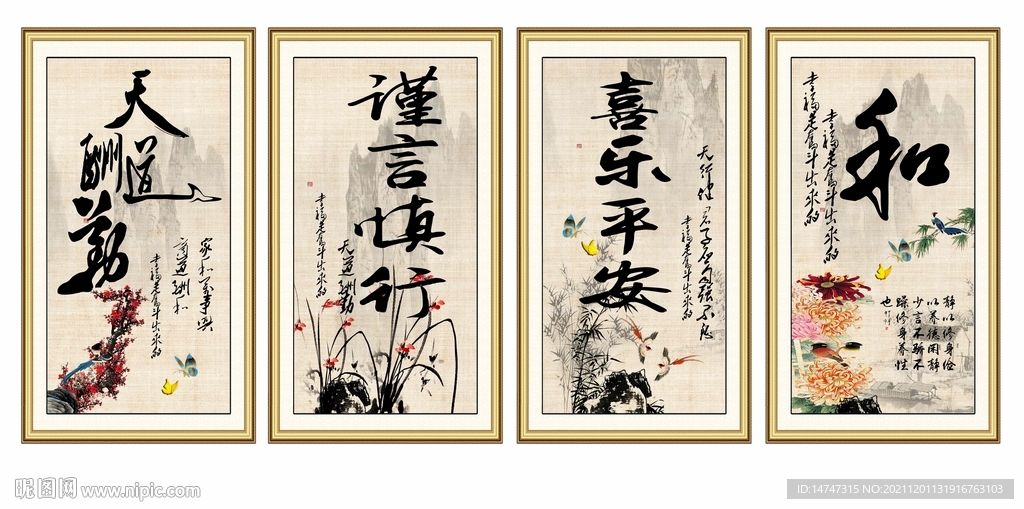 天道
酬勤
家和万事兴
商道酬和
幸福是奋斗出来的
谨言慎行
天道酬勤
幸福是奋斗出来的
喜乐平安
天行健君子应自强不息
幸福是奋斗出来的
和
幸福是奋斗出来的
幸福是奋斗出来的
静以修身俭
以养德闲静
少言不骄不
躁修身养性
也
昵图网 www.nipic.com
ID:14747315 NO:20211201131916763103